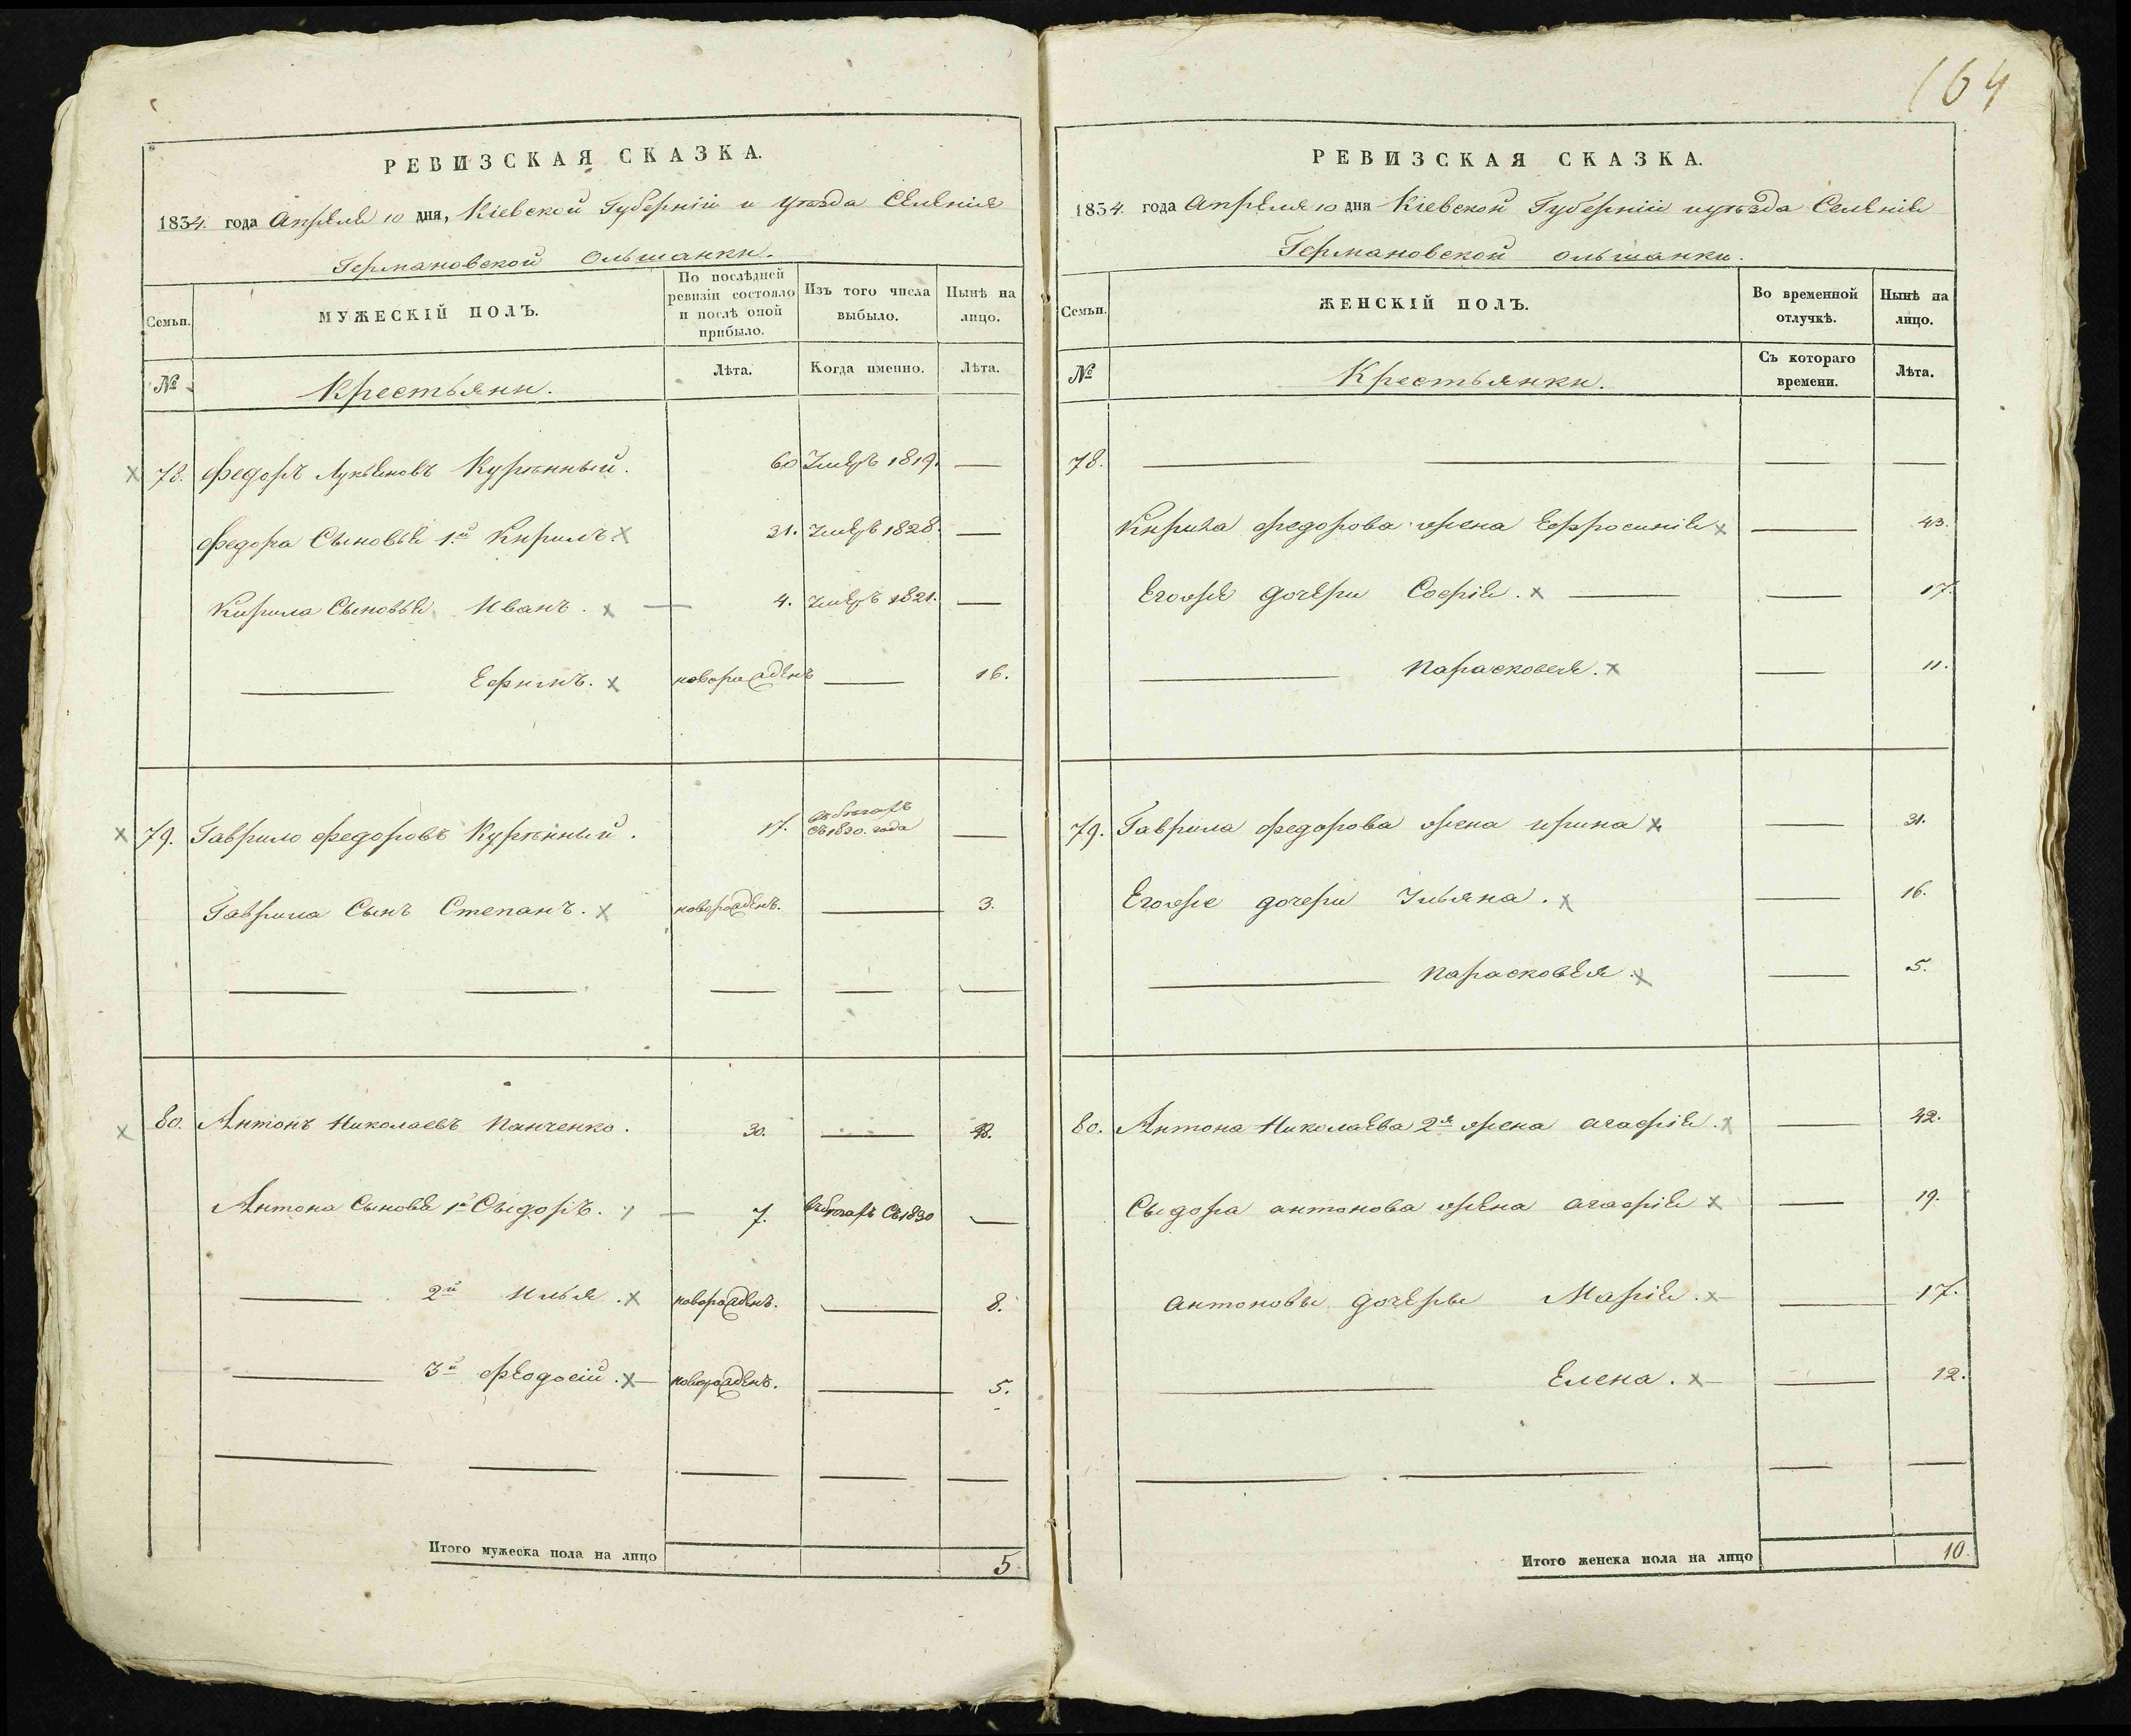 164
РЕВИЗСКАЯ СКАЗКА.
1834. года Апреля 10 дня, Кіевской Губерніи и уезда Селенія
Германовской Ольшанки.
Семьи. МУЖЕСКІЙ ПОЛЪ. По послѣдней ревизіи состояло и послѣ оной прибыло. Изъ того числа выбыло. Нынѣ на лицо.
№ Крестьяни. Лѣта. Когда именно. Лѣта.
78. Федоръ Лукьяновъ Куренный. 60 Умеръ 1819. —
Федора Сыновья 1й Кирилъ. 31. Умеръ 1828. —
Кирила Сыновья Иванъ. 4. Умеръ 1821. —
— Ефимъ. новорожденъ — 16.
79. Гаврило Федоровъ Куренный. 17. въ бегахъ съ 1830. года —
Гаврила Сынъ Степанъ. новорожденъ. — 3.
— — — — —
80. Антонъ Николаевъ Панченко. 30. —
Антона Сыновья 1й Сыдоръ. 7. въ бегахъ съ 1830 —
— 2й Илья. новорожденъ. — 8.
— 3й Феодосій. новорожденъ. — 5.
— — — — —
Итого мужеска пола на лицо 5
РЕВИЗСКАЯ СКАЗКА.
1834. года Апреля 10 дня Кіевской Губерніи и уезда Селенія
Германовской Ольшанки.
Семьи. ЖЕНСКІЙ ПОЛЪ. Во временной отлучкѣ. Нынѣ на лицо.
№ Крестьянки. Съ котораго времени. Лѣта.
78. — — — —
Кирила Федорова жена Ефросинія — 43.
Егоже дочери Софія. — — 17.
— Парасковея. — 11.
79. Гаврила Федорова жена Ирина — 31.
Егоже дочери Ульяна. — 16.
— Парасковея. — 5.
80. Антона Николаева 2я жена Агафія. — 42.
Сыдора Антонова жена Агафія — 19.
Антоновы дочеры Марія. — 17.
— Елена. — 12.
— — — —
Итого женска пола на лицо 10.